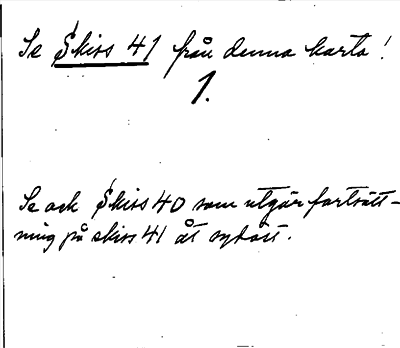 Se Skiss 41 från denna karta!
1.
Se ock Skiss 40 som utgör fortsätt-
ning på skiss 41 åt sydost.